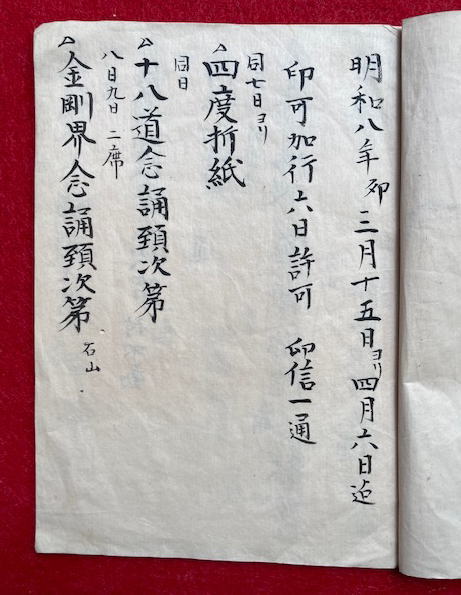 明和八年卯三月十五日ヨリ四月六日迠
印可加行六日許可 印信一通
同七日ヨリ
△四度折紙
同日
△十八道念誦頚次第
八日九日二席
△金剛界念誦頚次第 石山